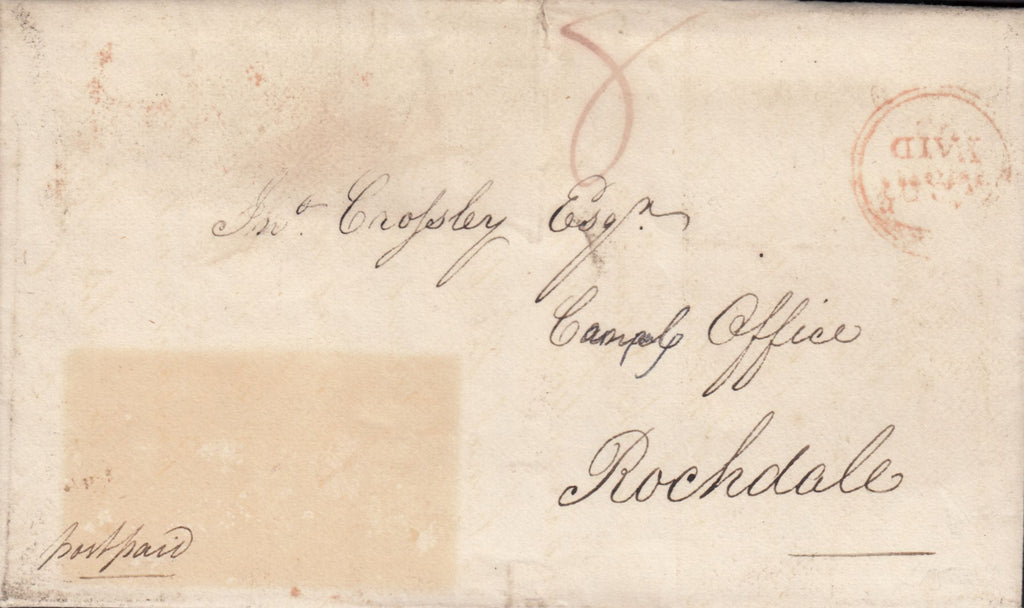 8
PAID
Jnº. Crofsley Esqr.
Canal Office
Rochdale
postpaid